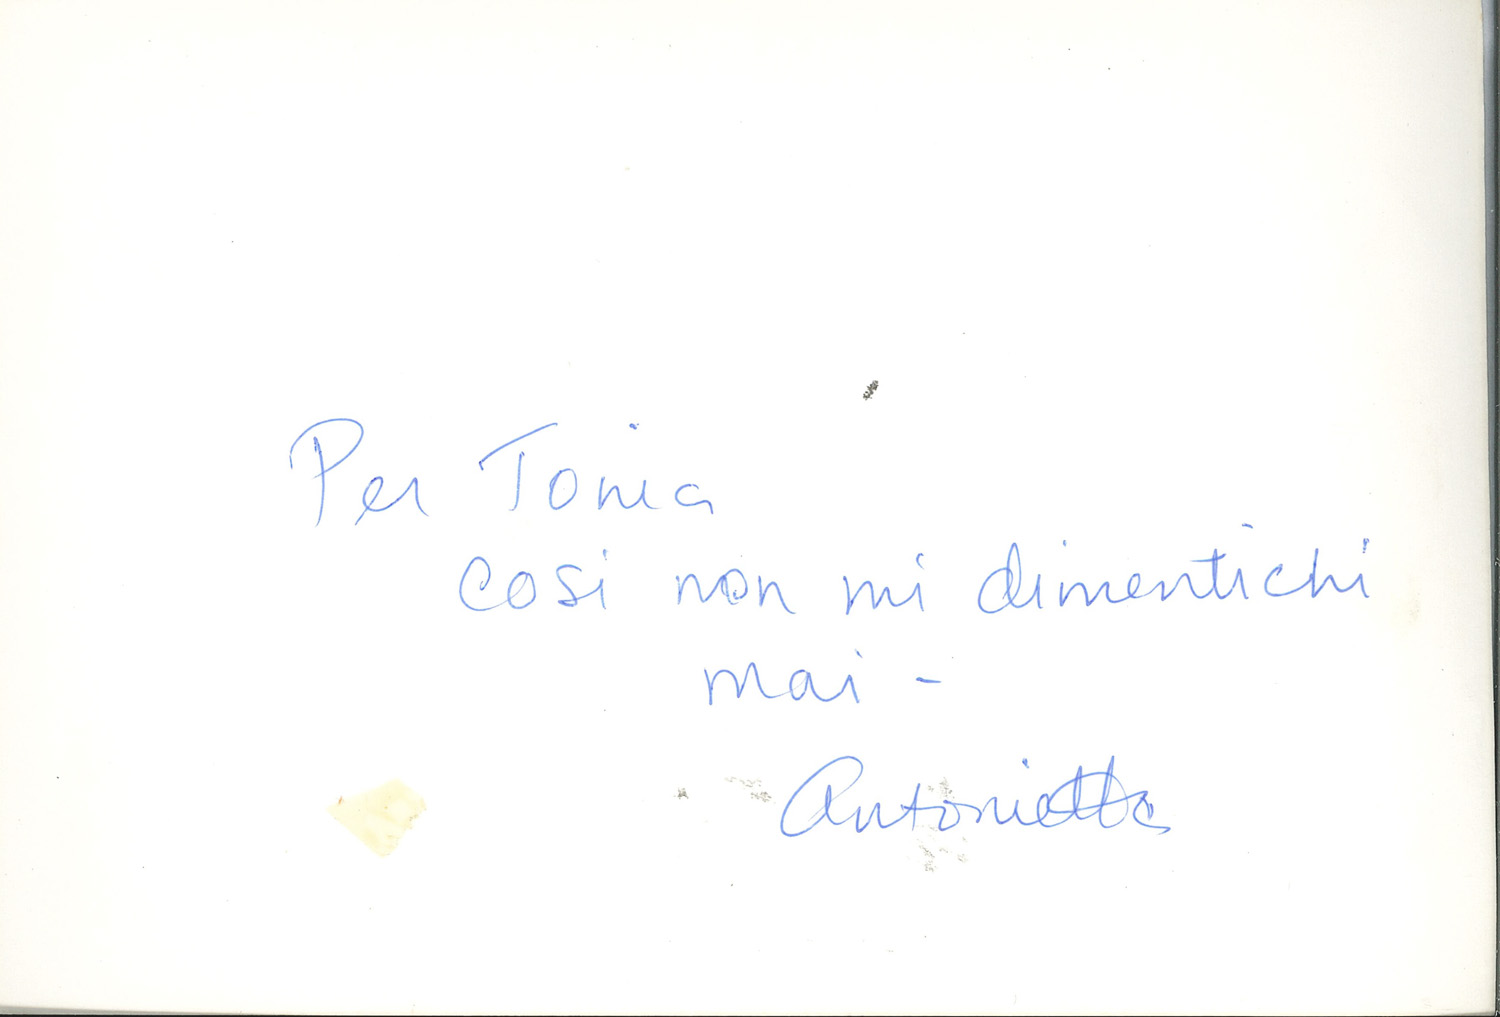 Per Tonia
Cosi non mi dimentichi
mai -
Antonietta